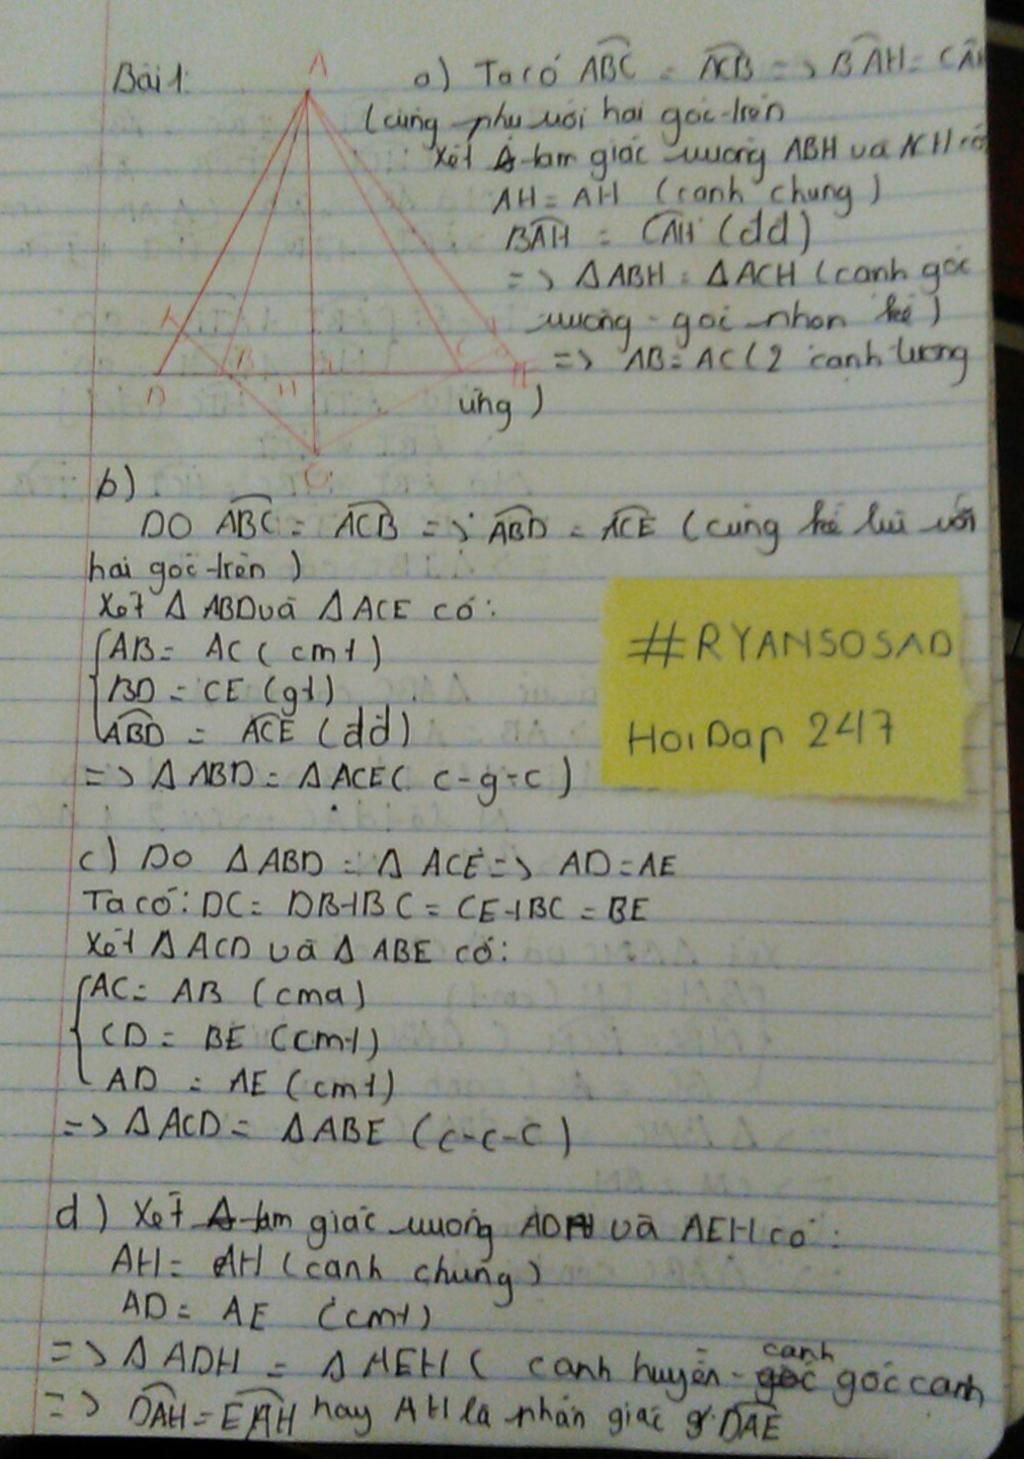 Bài 1:
A
a) Ta có ABC = ACB => BAH = CAH
(cùng phụ với hai góc trên
Xét tam giác vuông ABH và ACH có
AH = AH (cạnh chung)
BAH = CAH (dd)
=> Δ ABH = Δ ACH (cạnh góc
vuông - góc nhọn kề)
=> AB = AC (2 cạnh tương
ứng)
D B H C
b)
DO ABC = ACB => ABD = ACE (cùng kề bù với
hai góc trên)
Xét Δ ABD và Δ ACE có:
AB = AC (cmt)
BD = CE (gt)
ABD = ACE (dd)
=> Δ ABD = Δ ACE (c-g-c)
#RYANSOSAD
HoiDap 247
c) DO Δ ABD = Δ ACE => AD = AE
Ta có: DC = DB + BC = CE + BC = BE
Xét Δ ACD và Δ ABE có:
AC = AB (cma)
CD = BE (cmt)
AD = AE (cmt)
=> Δ ACD = Δ ABE (c-c-c)
d) Xét tam giác vuông ADH và AEH có:
AH = AH (cạnh chung)
AD = AE (cmt)
=> Δ ADH = Δ AEH (cạnh huyền - cạnh góc cạnh
=> DAH = EAH hay AH là phân giác g DAE